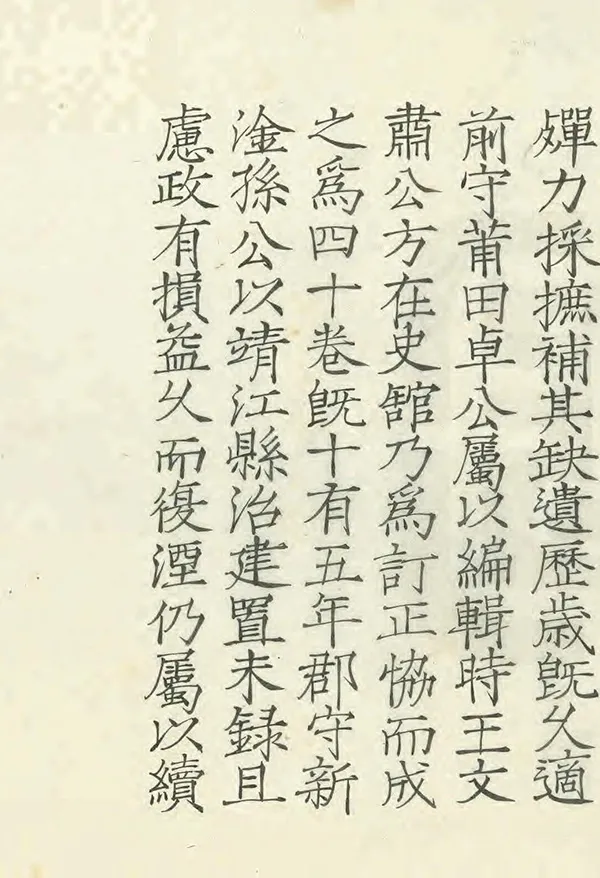 殫力採摭補其缺遺歷歲旣久適
前守莆田卓公屬以編輯時王文
肅公方在史舘乃爲訂正恊而成
之爲四十卷旣十有五年郡守新
淦孫公以靖江縣治建置未録且
慮政有損益久而復湮仍屬以續